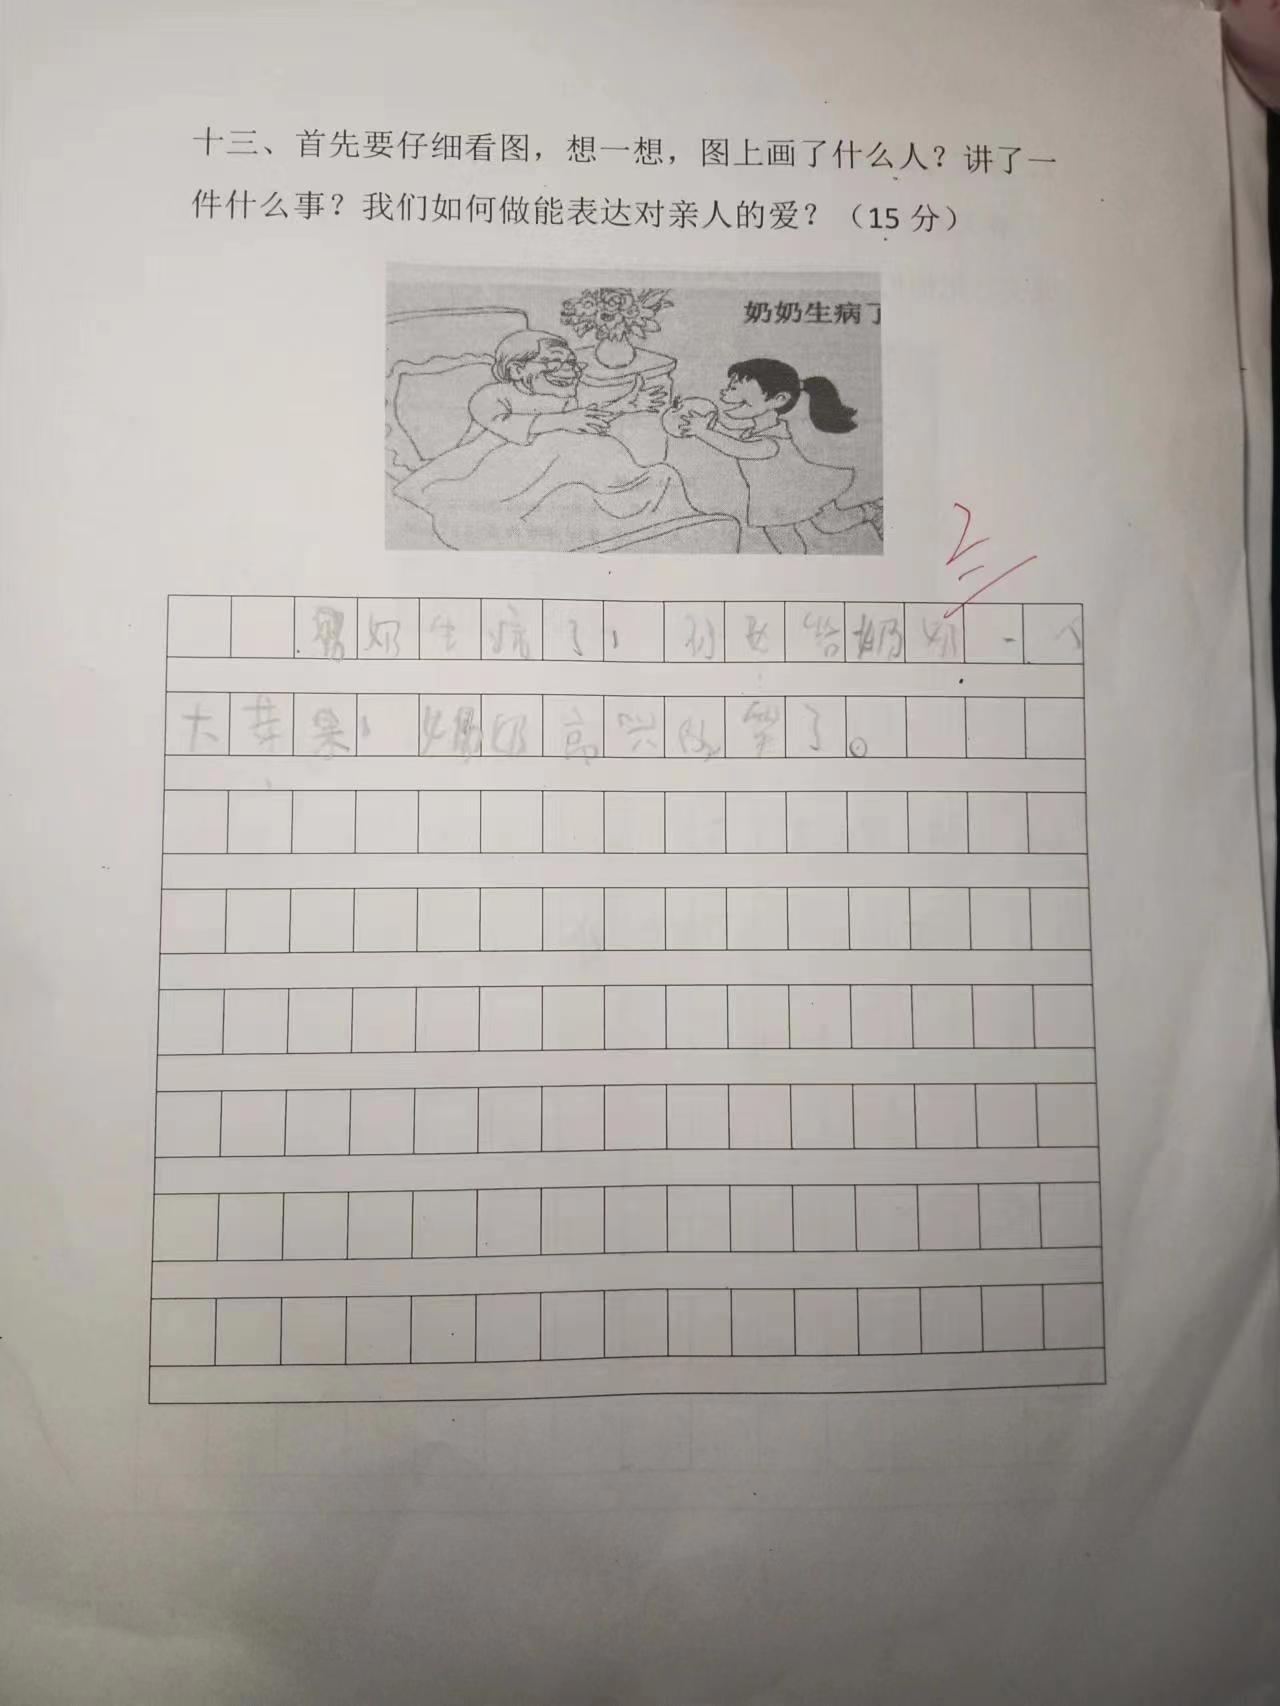 十三、首先要仔细看图，想一想，图上画了什么人？讲了一
件什么事？我们如何做能表达对亲人的爱？（15 分）
奶奶生病了
2
奶奶生病了，孙女给奶奶一个
大苹果，奶奶高兴的笑了。